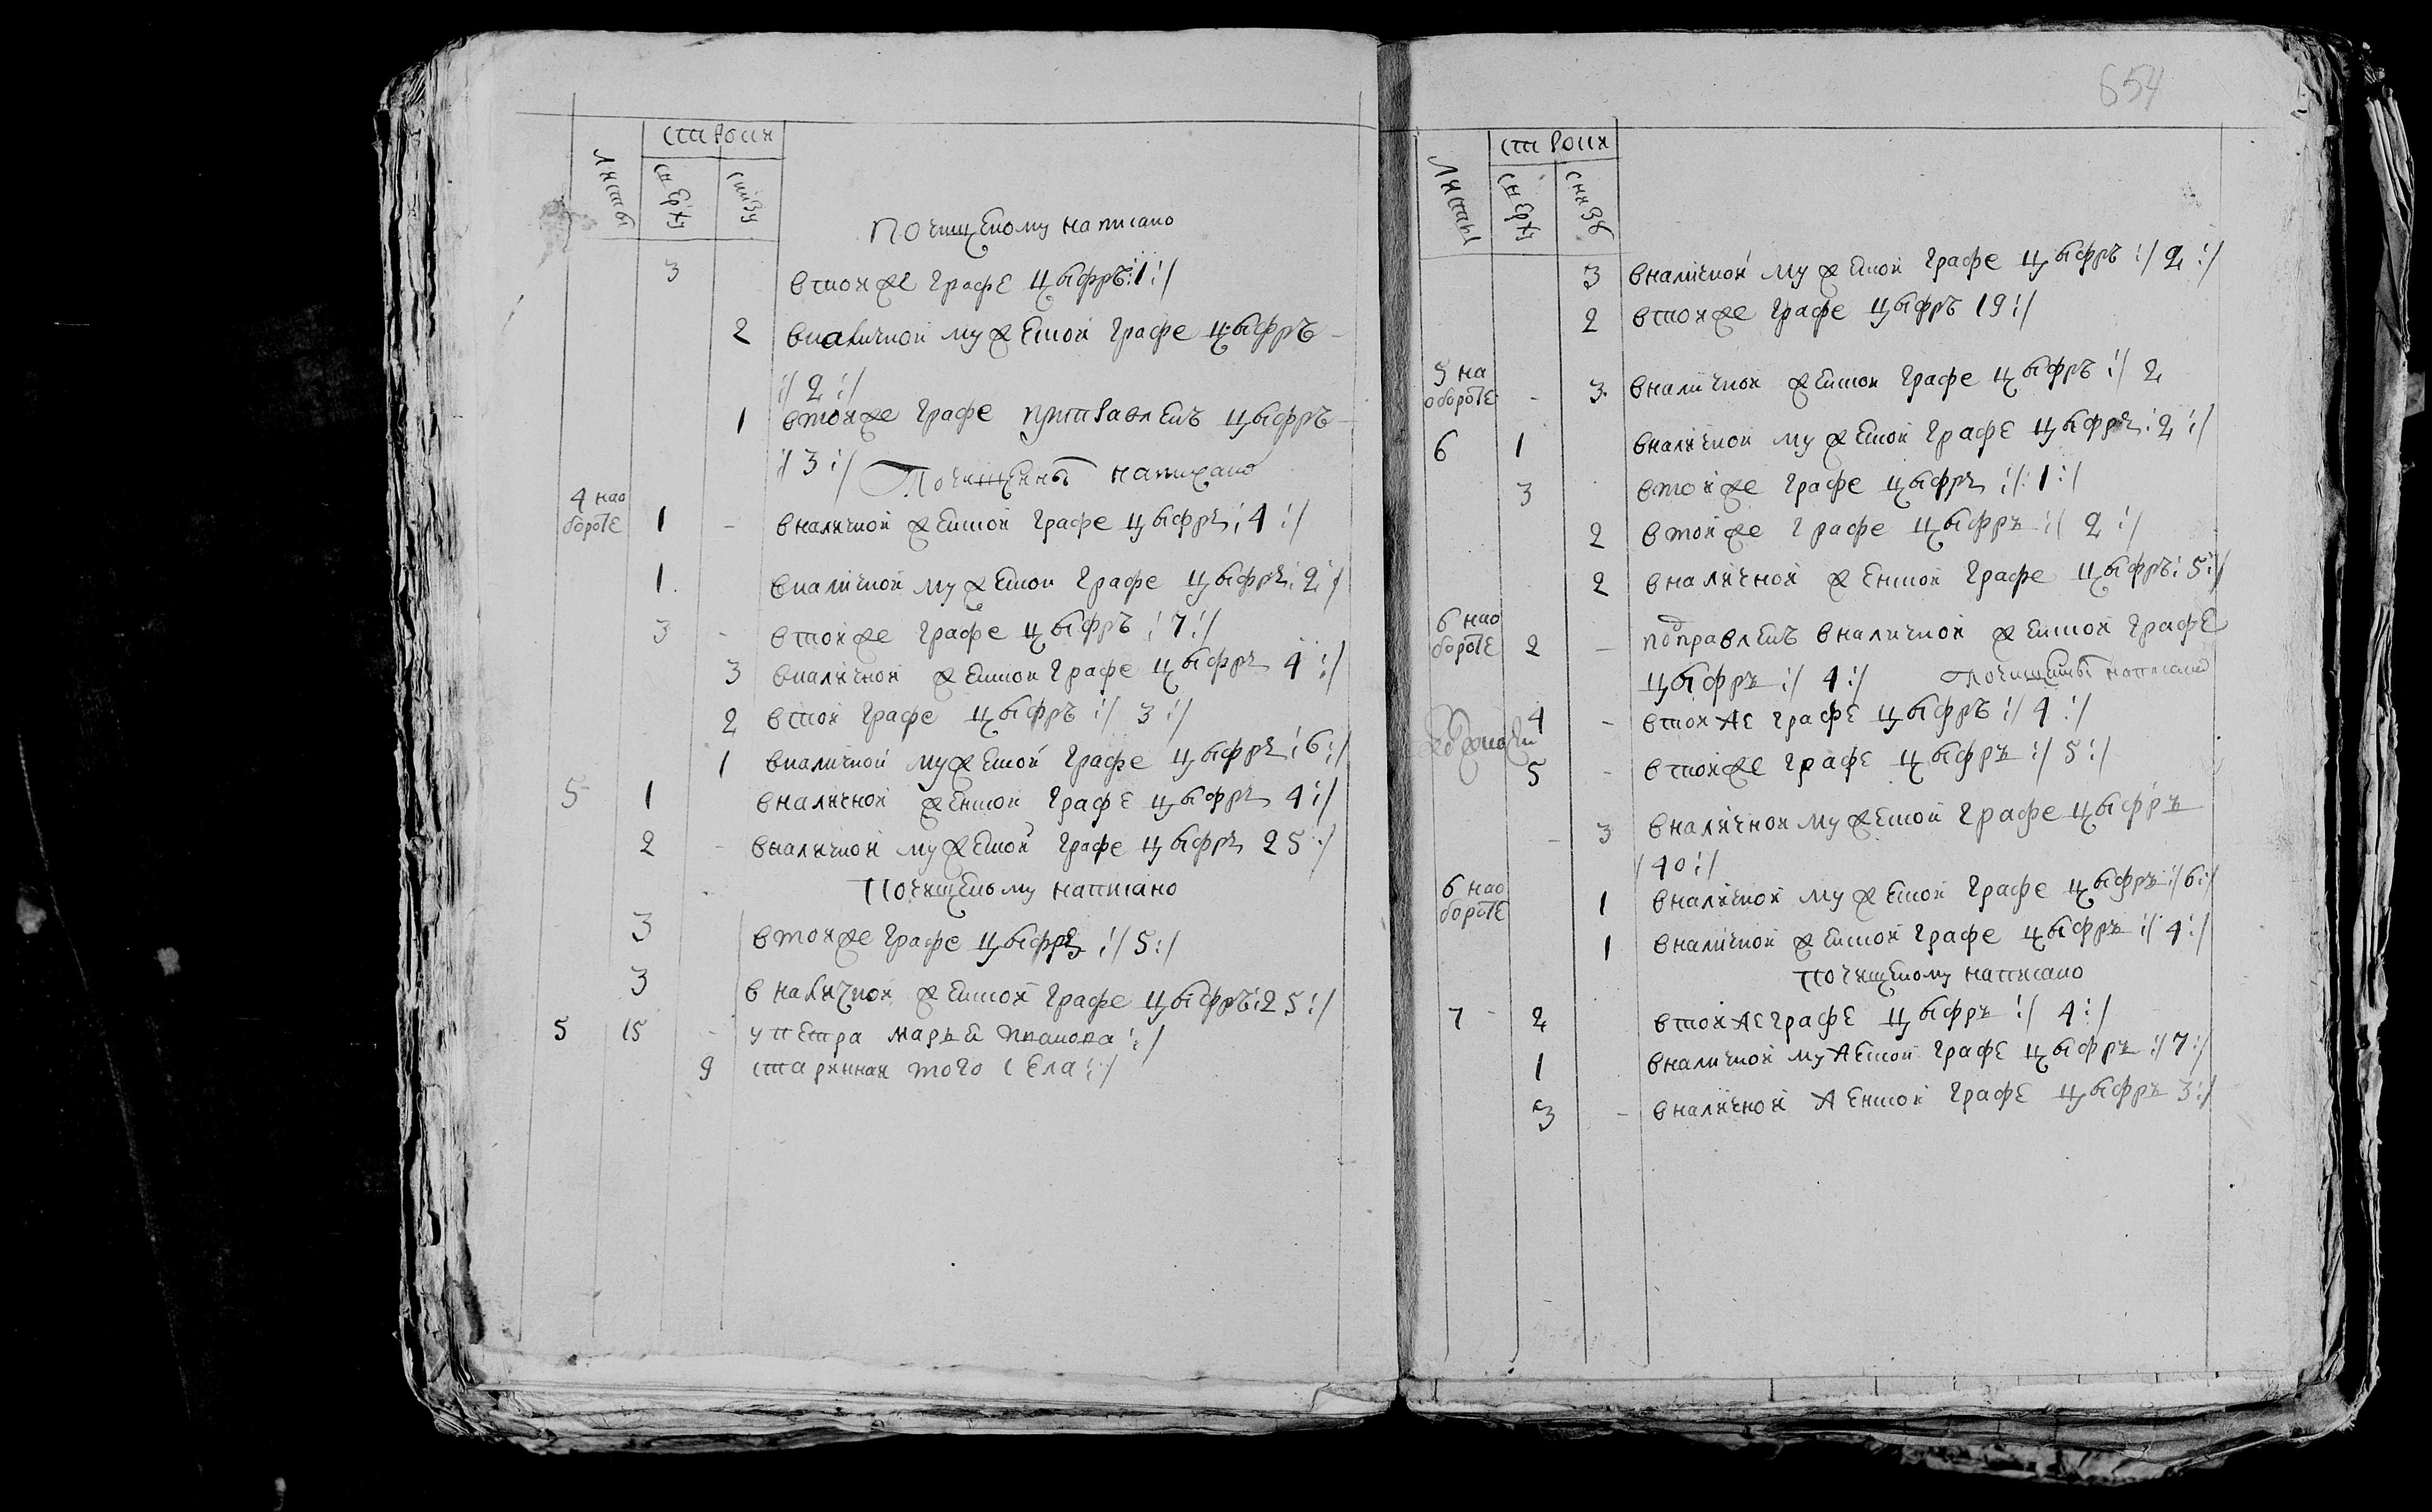 строки
листы
сверху
снизу
почищеному написано
3 втойже графе цыфръ :1:/
2 вналичной мужеской графе цыфръ
:/ 2 :/
1 втойже графе цыфръ
:/ 3 :/ почищенны написано
4 нао
бороте 1 - вналичной женской графе цыфръ :4 :/
1 вналичной мужеской графе цыфръ :2 :/
3 - втойже графе цыфръ : 7 :/
3 вналичной женской графе цыфръ 4 :/
2 втой графе цыфръ :/ 3 :/
1 вналичной мужеской графе цыфръ :6:/
5 1 вналичной женской графе цыфръ 4:/
2 - вналичной мужеской графе цыфръ 25 :/
почищеному написано
3 втойже графе цыфръ :/ 5:/
3 вналичной женской графе цыфръ :25:/
5 15 - упетра марьи :/
9 старинная того села :/
654
строки
листы
сверху
снизу
3 вналичной мужеской графе цыфръ :/ 2 :/
2 втойже графе цыфръ 19:/
5 на
обороте - 3 вналичной женской графе цыфръ :/ 2
6 1 вналичной мужеской графе цыфръ :2 :/
3 втойже графе цыфръ :/: 1 :/
2 втойже графе цыфръ :/ 2 :/
2 вналичной женской графе цыфръ : 5:/
6 нао
бороте 2 - подправленъ вналичной женской графе
цыфръ :/ 4 :/ почищенны написано
4 - втойже графе цыфръ :/ 4 :/
5 - втойже графе цыфръ :/ 5 :/
- 3 вналичной мужеской графе цыфръ
/ 40 :/
6 нао
бороте 1 вналичной мужеской графе цыфръ :/ 6:/
1 вналичной женской графе цыфръ :/ 4:/
почищеному написано
7 - 2 втойже графе цыфръ :/ 4:/
1 вналичной мужеской графе цыфръ :/ 7:/
3 - вналичной женской графе цыфръ 3:/